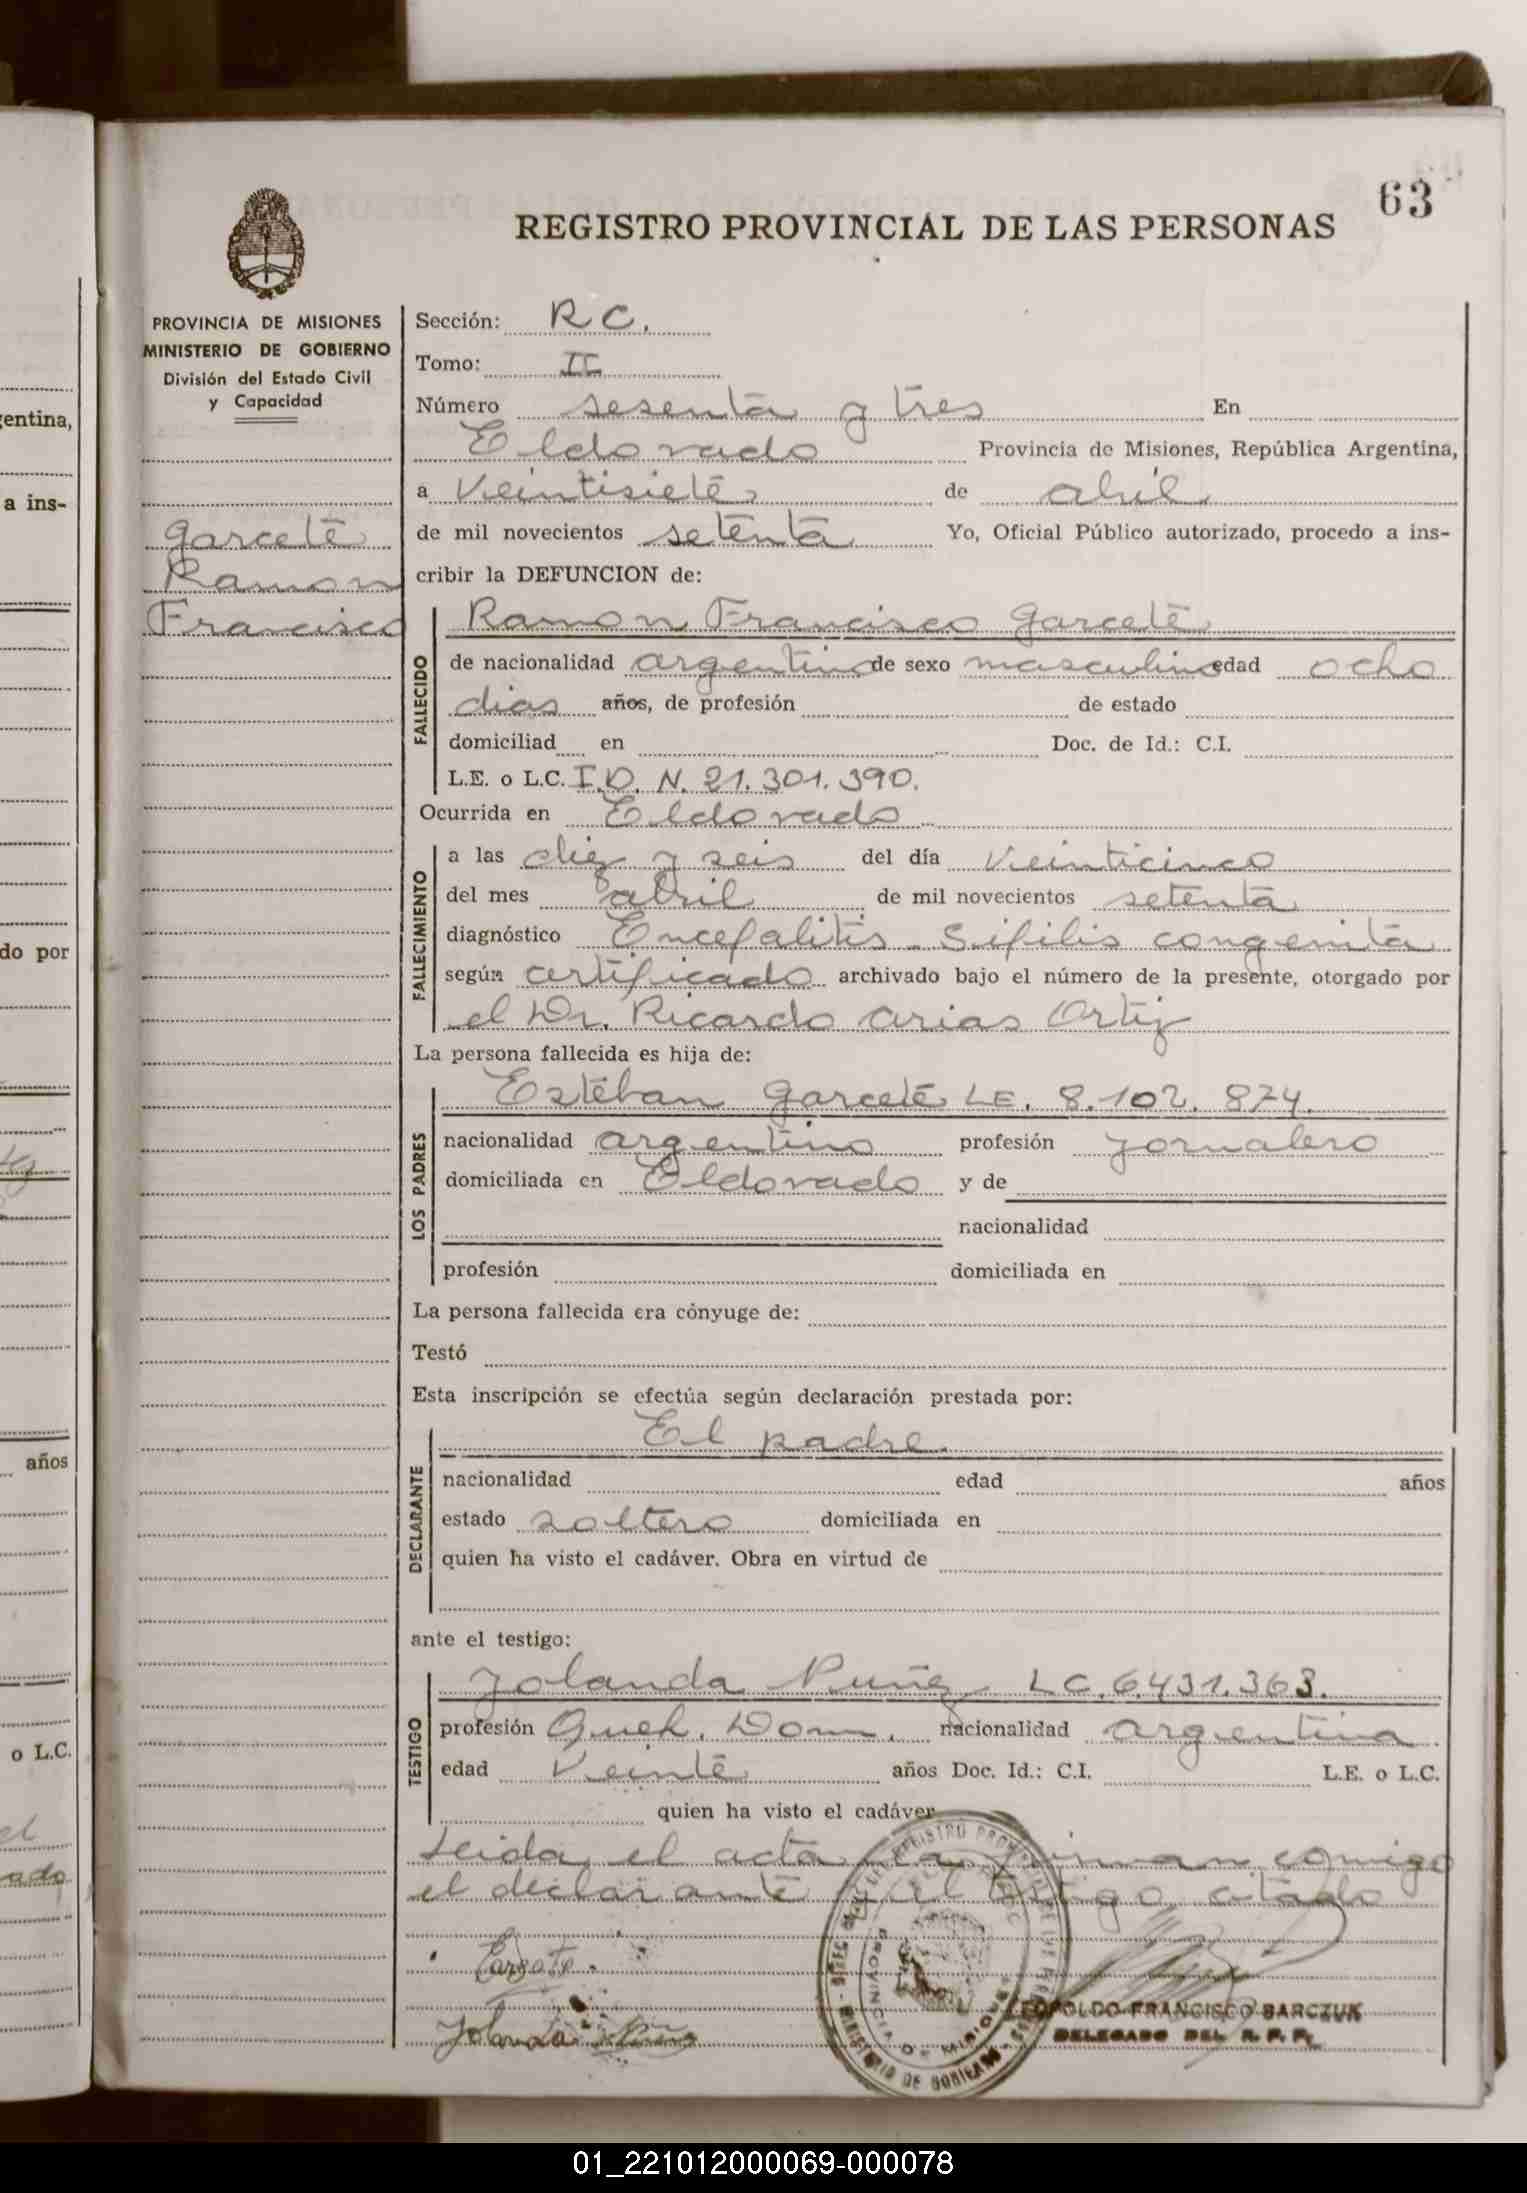 63
REGISTRO PROVINCIAL DE LAS PERSONAS
PROVINCIA DE MISIONES
MINISTERIO DE GOBIERNO
División del Estado Civil
y Capacidad
Garcete
Ramon
Francisco
Sección: R C.
Tomo: II
Número sesenta y tres En
Eldorado Provincia de Misiones, República Argentina,
a veintisiete de abril
de mil novecientos setenta Yo, Oficial Público autorizado, procedo a ins-
cribir la DEFUNCION de:
FALLECIDO
Ramon Francisco Garcete
de nacionalidad argentino de sexo masculino edad ocho
dias años, de profesión de estado
domiciliad en Doc. de Id.: C.I.
L.E. o L.C. I.D. N. 21.301.390.
Ocurrida en Eldorado
FALLECIMIENTO
a las diez y seis del día veinticinco
del mes abril de mil novecientos setenta
diagnóstico Encefalitis - Sifilis congenita
según certificado archivado bajo el número de la presente, otorgado por
el Dr. Ricardo Arias Ortiz
La persona fallecida es hija de:
LOS PADRES
Esteban Garcete LE. 8.102.874.
nacionalidad argentino profesión jornalero
domiciliada en Eldorado y de
nacionalidad
profesión domiciliada en
La persona fallecida era cónyuge de:
Testó
Esta inscripción se efectúa según declaración prestada por:
DECLARANTE
El padre.
nacionalidad edad años
estado soltero domiciliada en
quien ha visto el cadáver. Obra en virtud de
ante el testigo:
TESTIGO
Jolanda Nuñez LC. 6.431.363.
profesión Queh. Dom. nacionalidad argentina
edad Veinte años Doc. Id.: C.I. L.E. o L.C.
quien ha visto el cadáver
Leida el acta la firman conmigo
el declarante y el testigo citado
Jolanda
LEOPOLDO FRANCISCO BARCZUK
DELEGADO DEL R. P. P.
PROVINCIA DE MISIONES
MINISTERIO DE GOBIERNO
entina,
a ins-
do por
años
o L.C.
01_221012000069-000078